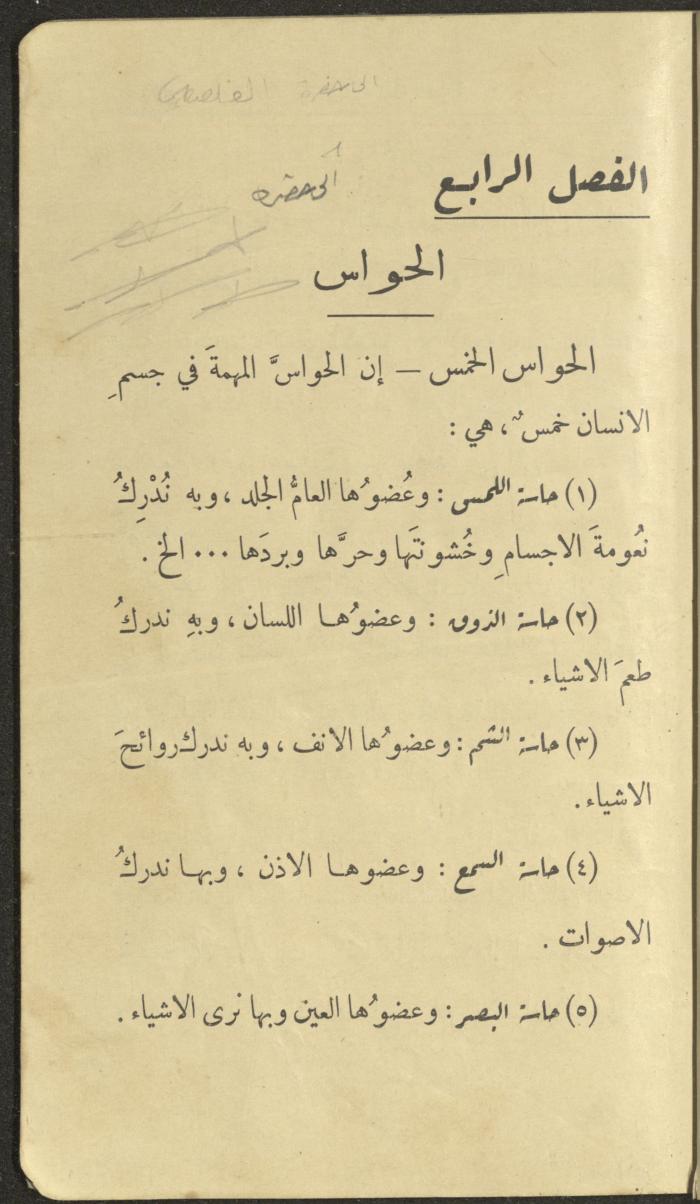 الى حضرة
الى حضره
الفصل الرابع
الحواس
الحواس الخمس — إن الحواسَّ المهمةَ في جسمِ
الانسان خمسٌ، هي :
(١) حاسة اللمس : وعُضوُها العامُّ الجلد ، وبه نُدْرِكُ
نعُومةَ الاجسامِ وخُشونتَها وحرَّها وبردَها ... الخ .
(٢) حاسة الذوق : وعضوُها اللسان ، وبهِ ندركُ
طعمَ الاشياء .
(٣) حاسة الشم : وعضوُها الانف ، وبه ندرك روائحَ
الاشياء .
(٤) حاسة السمع : وعضوها الاذن ، وبها ندركُ
الاصوات .
(٥) حاسة البصر : وعضوُها العين وبها نرى الاشياء .